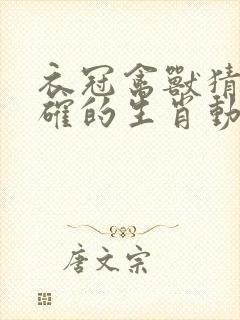 衣冠禽獸猜
確的生肖動
唐文宗